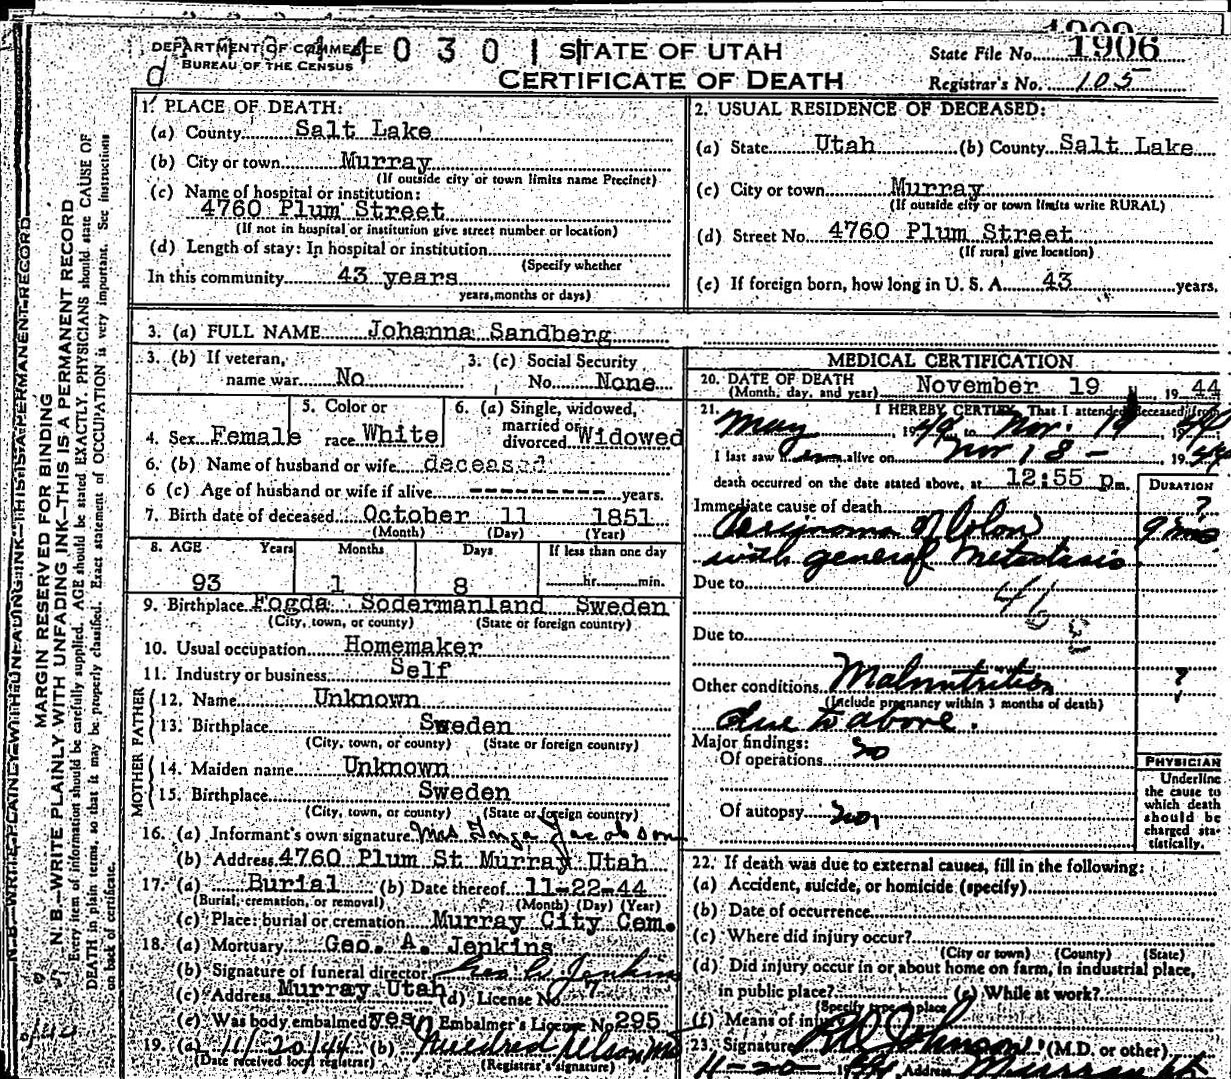 DEPARTMENT OF COMMERCE
BUREAU OF THE CENSUS
STATE OF UTAH
CERTIFICATE OF DEATH
State File No. 1906
Registrar's No. 105
1. PLACE OF DEATH:
(a) County Salt Lake
(b) City or town Murray
(If outside city or town limits name Precinct)
(c) Name of hospital or institution:
4760 Plum Street
(If not in hospital or institution give street number or location)
(d) Length of stay: In hospital or institution
(Specify whether
In this community 43 years
years, months or days)
2. USUAL RESIDENCE OF DECEASED:
(a) State Utah (b) County Salt Lake
(c) City or town Murray
(If outside city or town limits write RURAL)
(d) Street No. 4760 Plum Street
(If rural give location)
(e) If foreign born, how long in U. S. A. 43 years.
3. (a) FULL NAME Johanna Sandberg
3. (b) If veteran,
name war No
3. (c) Social Security
No. None
4. Sex Female
5. Color or
race White
6. (a) Single, widowed,
married or
divorced Widowed
6. (b) Name of husband or wife deceased
6 (c) Age of husband or wife if alive ---------- years.
7. Birth date of deceased October 11 1851
(Month) (Day) (Year)
8. AGE Years Months Days If less than one day
93 1 8 hr. min.
9. Birthplace Fogda Sodermanland Sweden
(City, town, or county) (State or foreign country)
10. Usual occupation Homemaker
11. Industry or business Self
FATHER
12. Name Unknown
13. Birthplace Sweden
(City, town, or county) (State or foreign country)
MOTHER
14. Maiden name Unknown
15. Birthplace Sweden
(City, town, or county) (State or foreign country)
16. (a) Informant's own signature Mrs Inga Jacobson
(b) Address 4760 Plum St Murray Utah
17. (a) Burial (b) Date thereof 11-22-44
(Burial, cremation, or removal) (Month) (Day) (Year)
(c) Place: burial or cremation Murray City Cem.
18. (a) Mortuary Geo. A. Jenkins
(b) Signature of funeral director Geo A. Jenkins
(c) Address Murray Utah (d) License No. 7
(e) Was body embalmed yes Embalmer's License No. 295
19. (a) 11/20/44 (b) Mildred Nelson
(Date received local registrar) (Registrar's signature)
MEDICAL CERTIFICATION
20. DATE OF DEATH
(Month, day, and year) November 19, 1944
21. I HEREBY CERTIFY, That I attended deceased from
May, 19 44 to Nov. 19 1944
I last saw alive on Nov 18 - 1944
death occurred on the date stated above, at 12:55 p.m.
DURATION
Immediate cause of death ?
Carcinoma of Colon 9 mo
with general metastasis
Due to
46
Due to
Other conditions Malnutrition ?
(Include pregnancy within 3 months of death)
due to above.
Major findings:
Of operations no
Of autopsy no
PHYSICIAN
Underline
the cause to
which death
should be
charged sta-
tistically.
22. If death was due to external causes, fill in the following:
(a) Accident, suicide, or homicide (specify)
(b) Date of occurrence
(c) Where did injury occur?
(City or town) (County) (State)
(d) Did injury occur in or about home on farm, in industrial place,
in public place? (e) While at work?
(Specify type of place)
(f) Means of injury
23. Signature Johnson (M.D. or other)
11-20 1944 Address Murray Ut
N. B.—WRITE PLAINLY WITH UNFADING INK—THIS IS A PERMANENT RECORD
MARGIN RESERVED FOR BINDING
N. B.—WRITE PLAINLY WITH UNFADING INK—THIS IS A PERMANENT RECORD
Every item of information should be carefully supplied. AGE should be stated EXACTLY. PHYSICIANS should state CAUSE OF
DEATH in plain terms, so that it may be properly classified. Exact statement of OCCUPATION is very important. See instructions
on back of certificate.